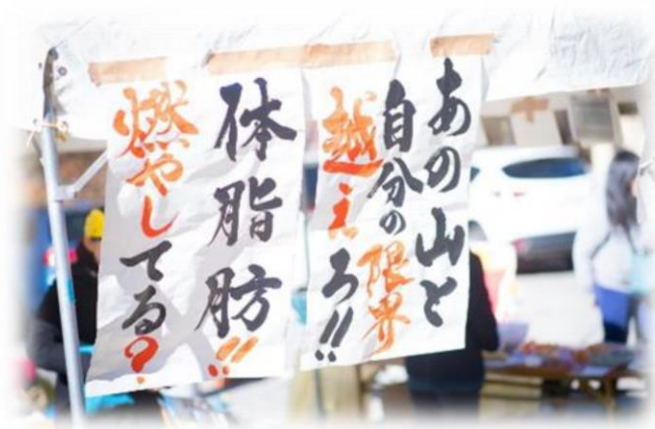 あの山と
自分の限界
越えろ!!
体脂肪!!
燃やしてる?